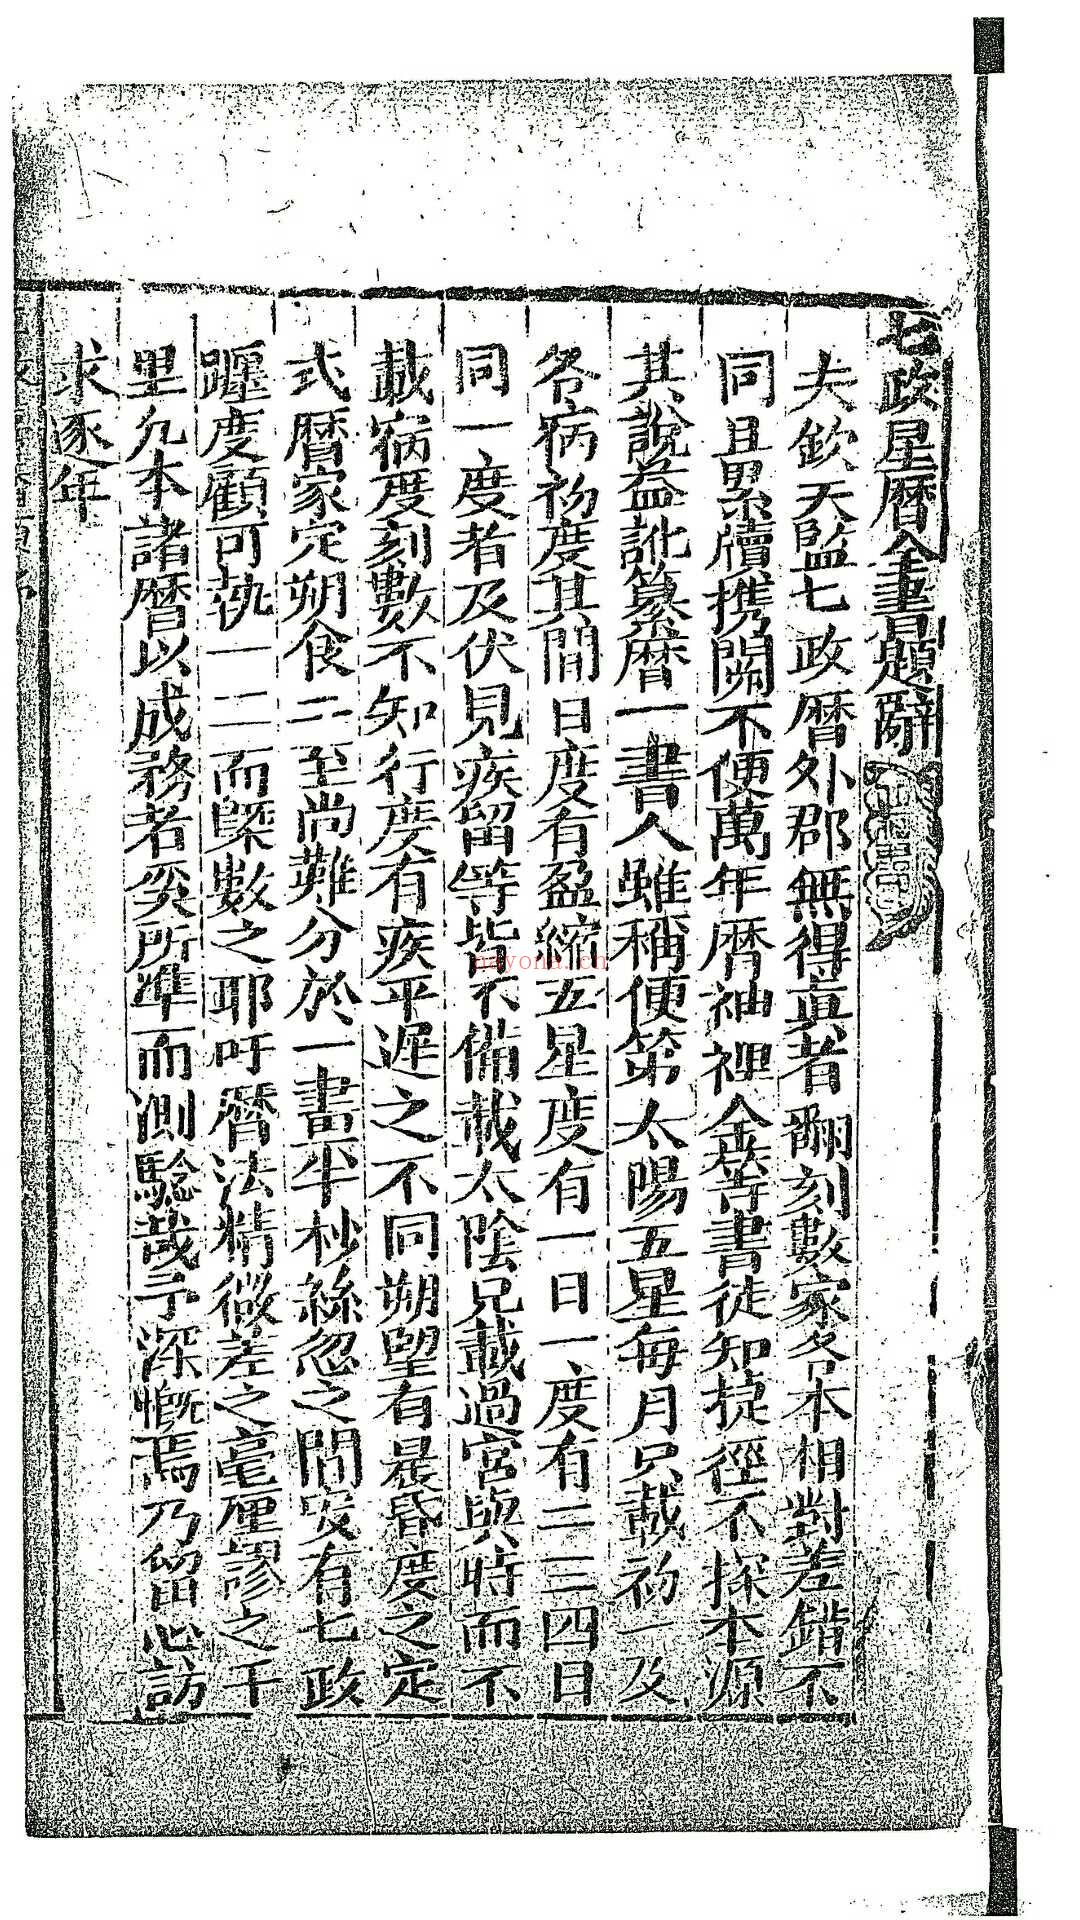 七政星曆全書題辭
夫欽天監七政曆外郡無得真者翻刻數家各本相對差錯不
同且累牘携閱不便萬年曆袖裡金等書徒知捷徑不探本源
其說益訛纂曆一書人雖稱便第太陽五星每月只載初一及
各宿初度其間日度有盈縮五星度有一日一度有二三四日
同一度者及伏見疾留等皆不備載太陰只載過宮與時而不
載宿度刻數不知行度有疾平遲之不同朔望有晨昏度之定
式曆家定朔食二至尚難分於一晝半杪絲忽之間况有七政
躔度顧可執一二而槩數之耶吁曆法精微差之毫厘謬之千
里凡本諸曆以成務者奚所準而測驗哉予深慨焉乃留心訪
求逐年
nayona.cn